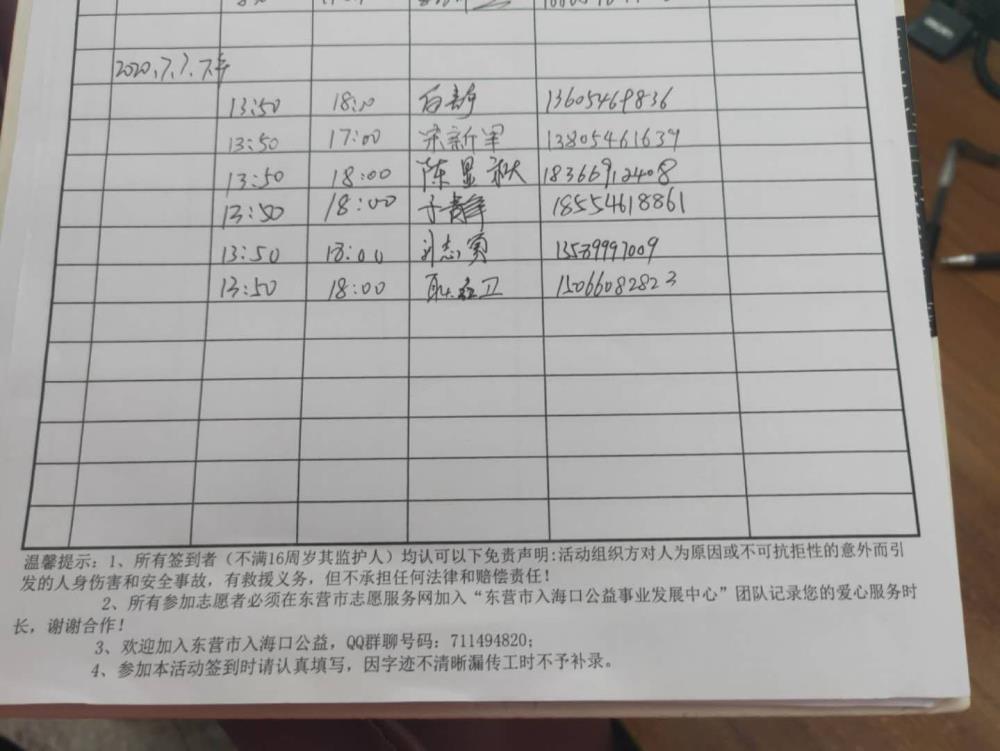 2020.7.7.下午
13:50 18:00 白静 13605469836
13:50 17:00 宋新军 13805461639
13:50 18:00 陈显 18366912408
13:50 18:00 于青 18554618861
13:50 18:00 刘志 13589997009
13:50 18:00 耿红卫 15066082823
温馨提示：1、所有签到者（不满16周岁其监护人）均认可以下免责声明:活动组织方对人为原因或不可抗拒性的意外而引
发的人身伤害和安全事故，有救援义务，但不承担任何法律和赔偿责任！
2、所有参加志愿者必须在东营市志愿服务网加入“东营市入海口公益事业发展中心”团队记录您的爱心服务时
长，谢谢合作！
3、欢迎加入东营市入海口公益，QQ群聊号码：711494820;
4、参加本活动签到时请认真填写，因字迹不清晰漏传工时不予补录。